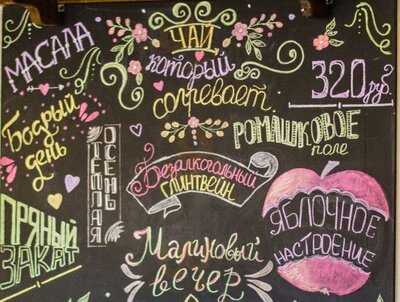 МАСАЛА
ЧАЙ
который
согревает
320 руб
Бодрый
день
ТЕПЛАЯ
ОСЕНЬ
РОМАШКОВОЕ
поле
Безалкогольный
ГЛИНТВЕЙН
ПРЯНЫЙ
ЗАКАТ
ЯБЛОЧНОЕ
НАСТРОЕНИЕ
Малиновый
вечер